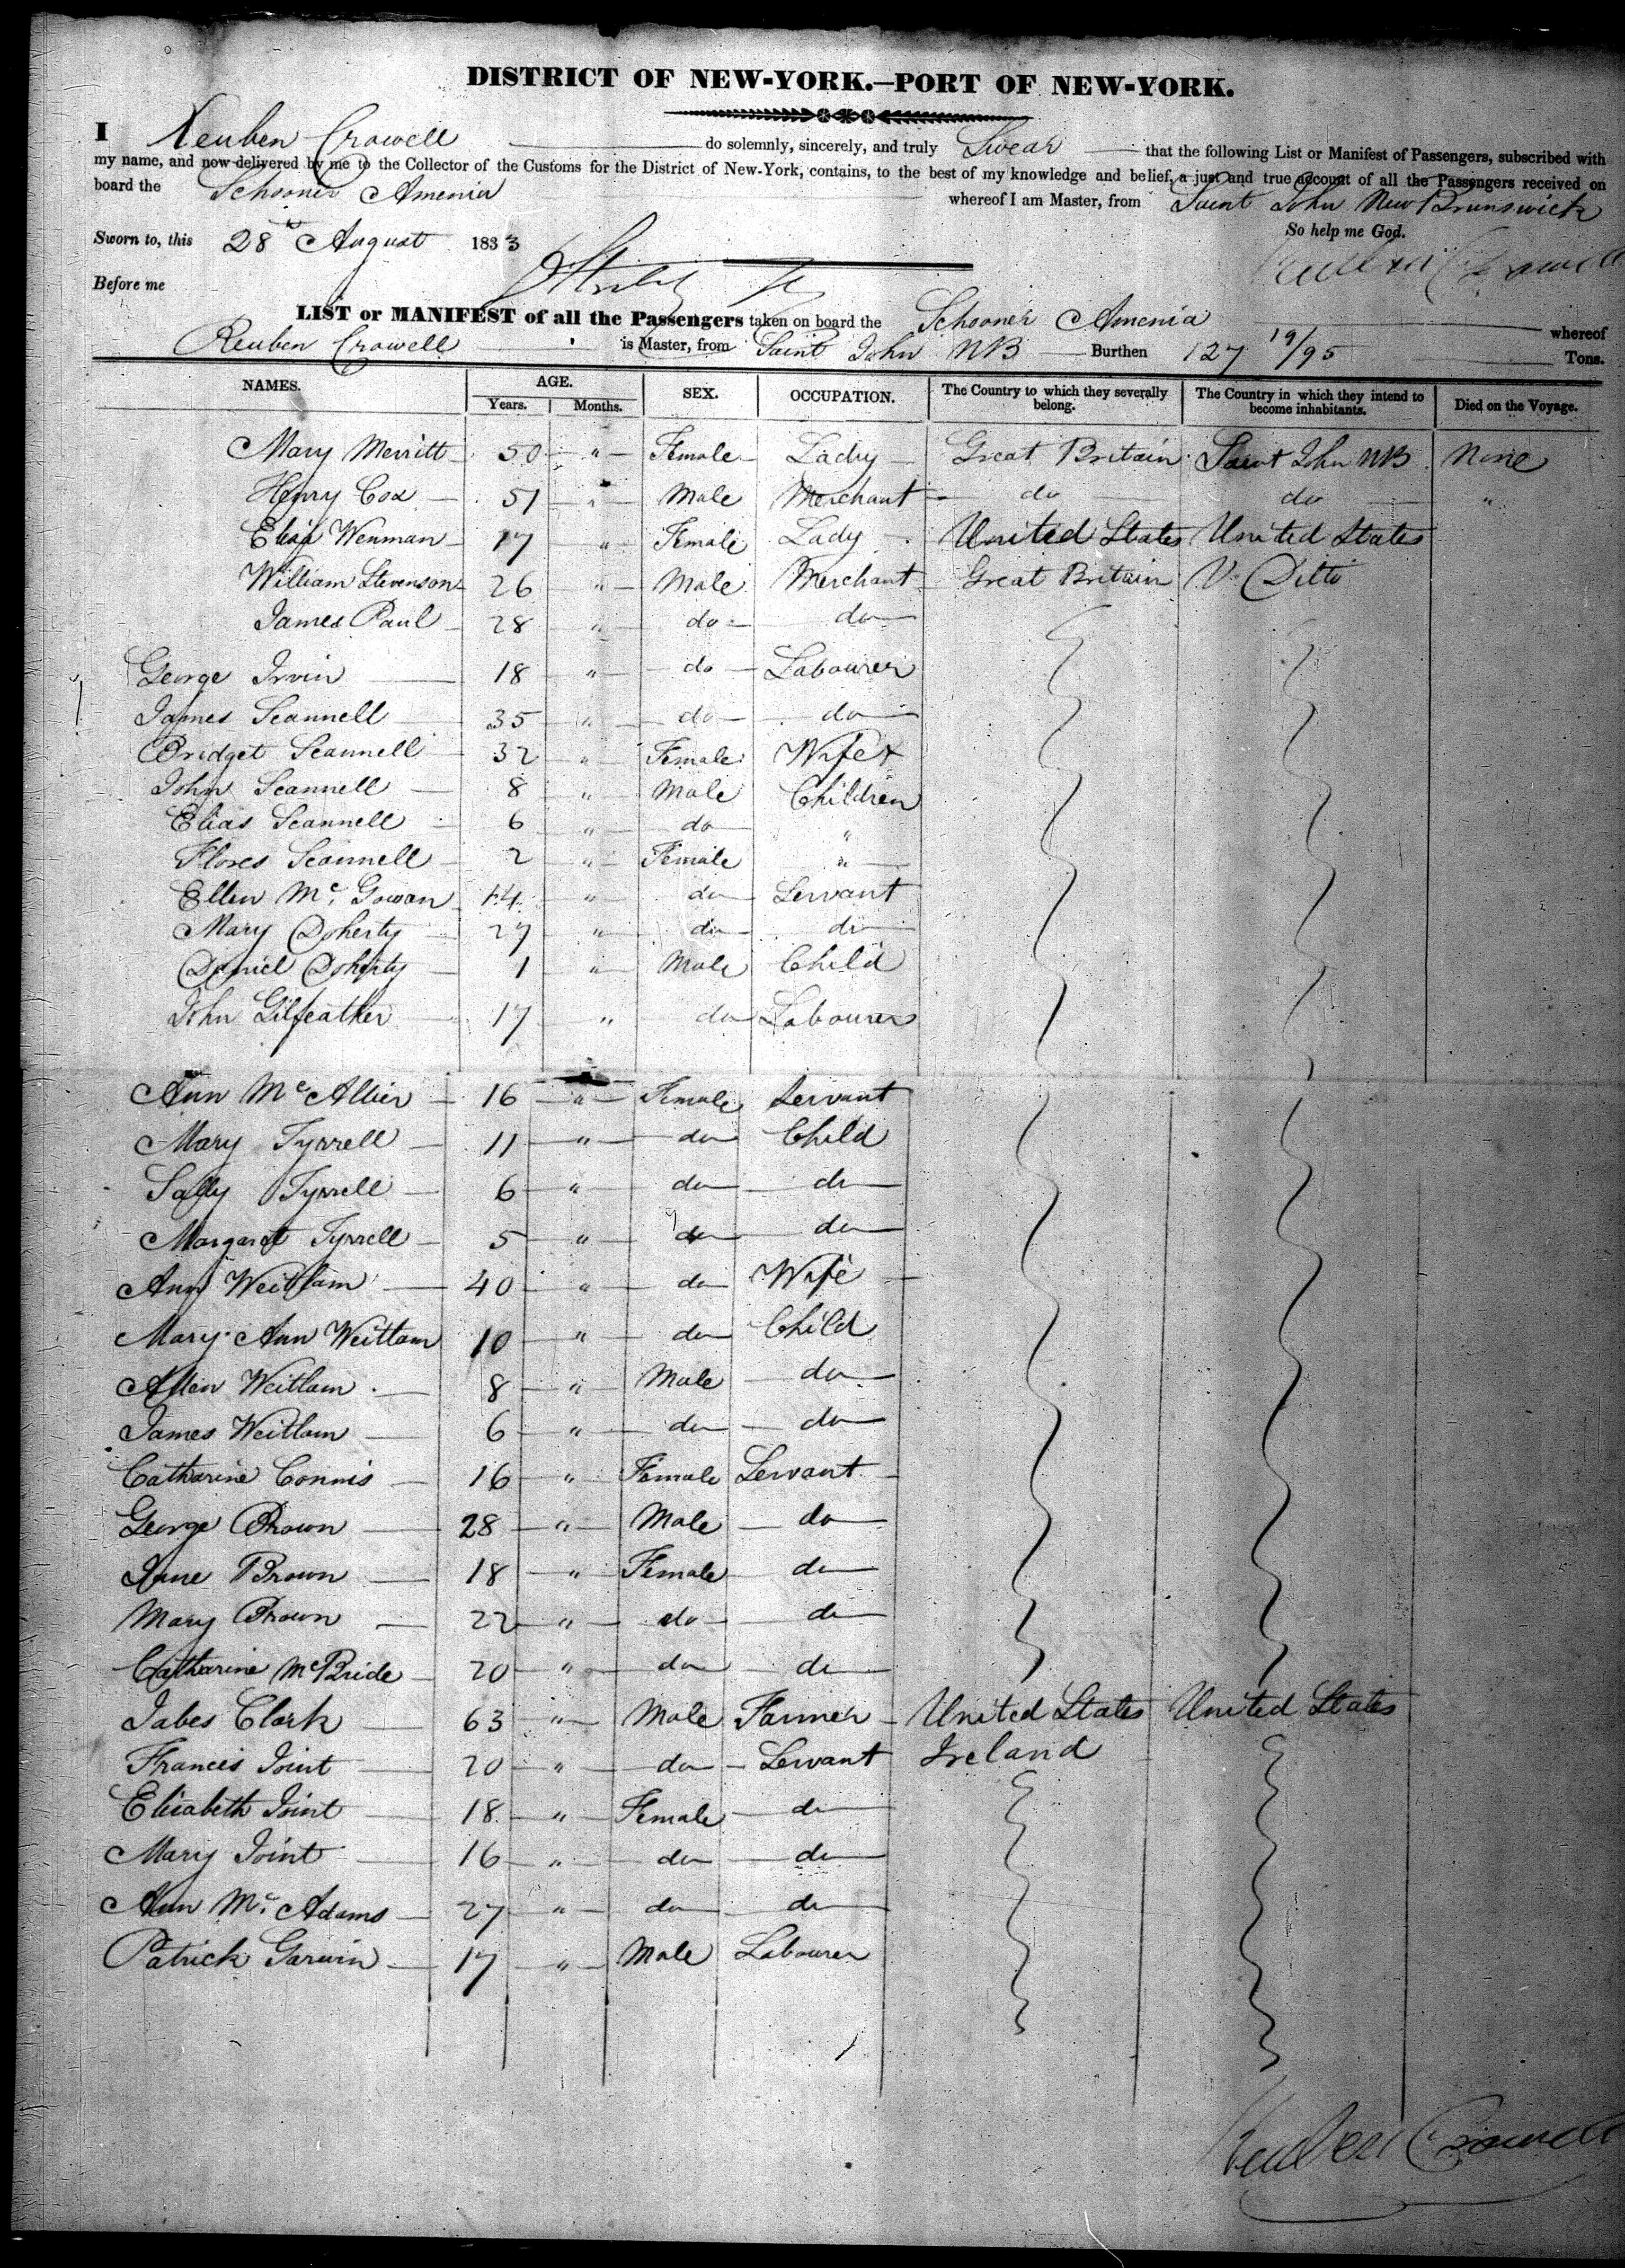 DISTRICT OF NEW-YORK.—PORT OF NEW-YORK.
I Reuben Crowell do solemnly, sincerely, and truly Swear that the following List or Manifest of Passengers, subscribed with
my name, and now delivered by me to the Collector of the Customs for the District of New-York, contains, to the best of my knowledge and belief, a just and true account of all the Passengers received on
board the Schooner Amenia whereof I am Master, from Saint John New Brunswick
So help me God.
Sworn to, this 28th August 1833
Reuben Crowell
Before me
LIST or MANIFEST of all the Passengers taken on board the Schooner Amenia whereof
Reuben Crowell is Master, from Saint John NB Burthen 127 19/95 Tons.
NAMES. AGE. Years. Months. SEX. OCCUPATION. The Country to which they severally belong. The Country in which they intend to become inhabitants. Died on the Voyage.
Mary Merritt 50 " Female Lady Great Britain Saint John NB None
Henry Cox 51 " Male Merchant do do "
Eliza Wenman 17 " Female Lady United States United States
William Stevenson 26 " Male Merchant Great Britain U. Ditto
James Paul 28 " do do
George Irvin 18 " do Labourer
James Scannell 35 " do do
Bridget Scannell 32 " Female Wife +
John Scannell 8 " Male Children
Elias Scannell 6 " do "
Flores Scannell 2 " Female "
Ellen Mc. Gowan 14 " do Servant
Mary Doherty 27 " do do
Daniel Doherty 1 " Male Child
John Gilfeather 17 " do Labourer
Ann Mc Allier 16 " Female Servant
Mary Tyrrell 11 " do Child
Sally Tyrrell 6 " do do
Margaret Tyrrell 5 " do do
Ann Weitlam 40 " do Wife
Mary Ann Weitlam 10 " do Child
Allen Weitlam 8 " Male do
James Weitlam 6 " do do
Catharine Connis 16 " Female Servant
George Brown 28 " Male do
Jane Brown 18 " Female do
Mary Brown 22 " do do
Catharine McBride 20 " do do
Jabes Clark 63 " Male Farmer United States United States
Francis Joint 20 " do Servant Ireland
Elizabeth Joint 18 " Female do
Mary Joint 16 " do do
Ann Mc. Adams 27 " do do
Patrick Garwin 17 " Male Labourer
Reuben Crowell